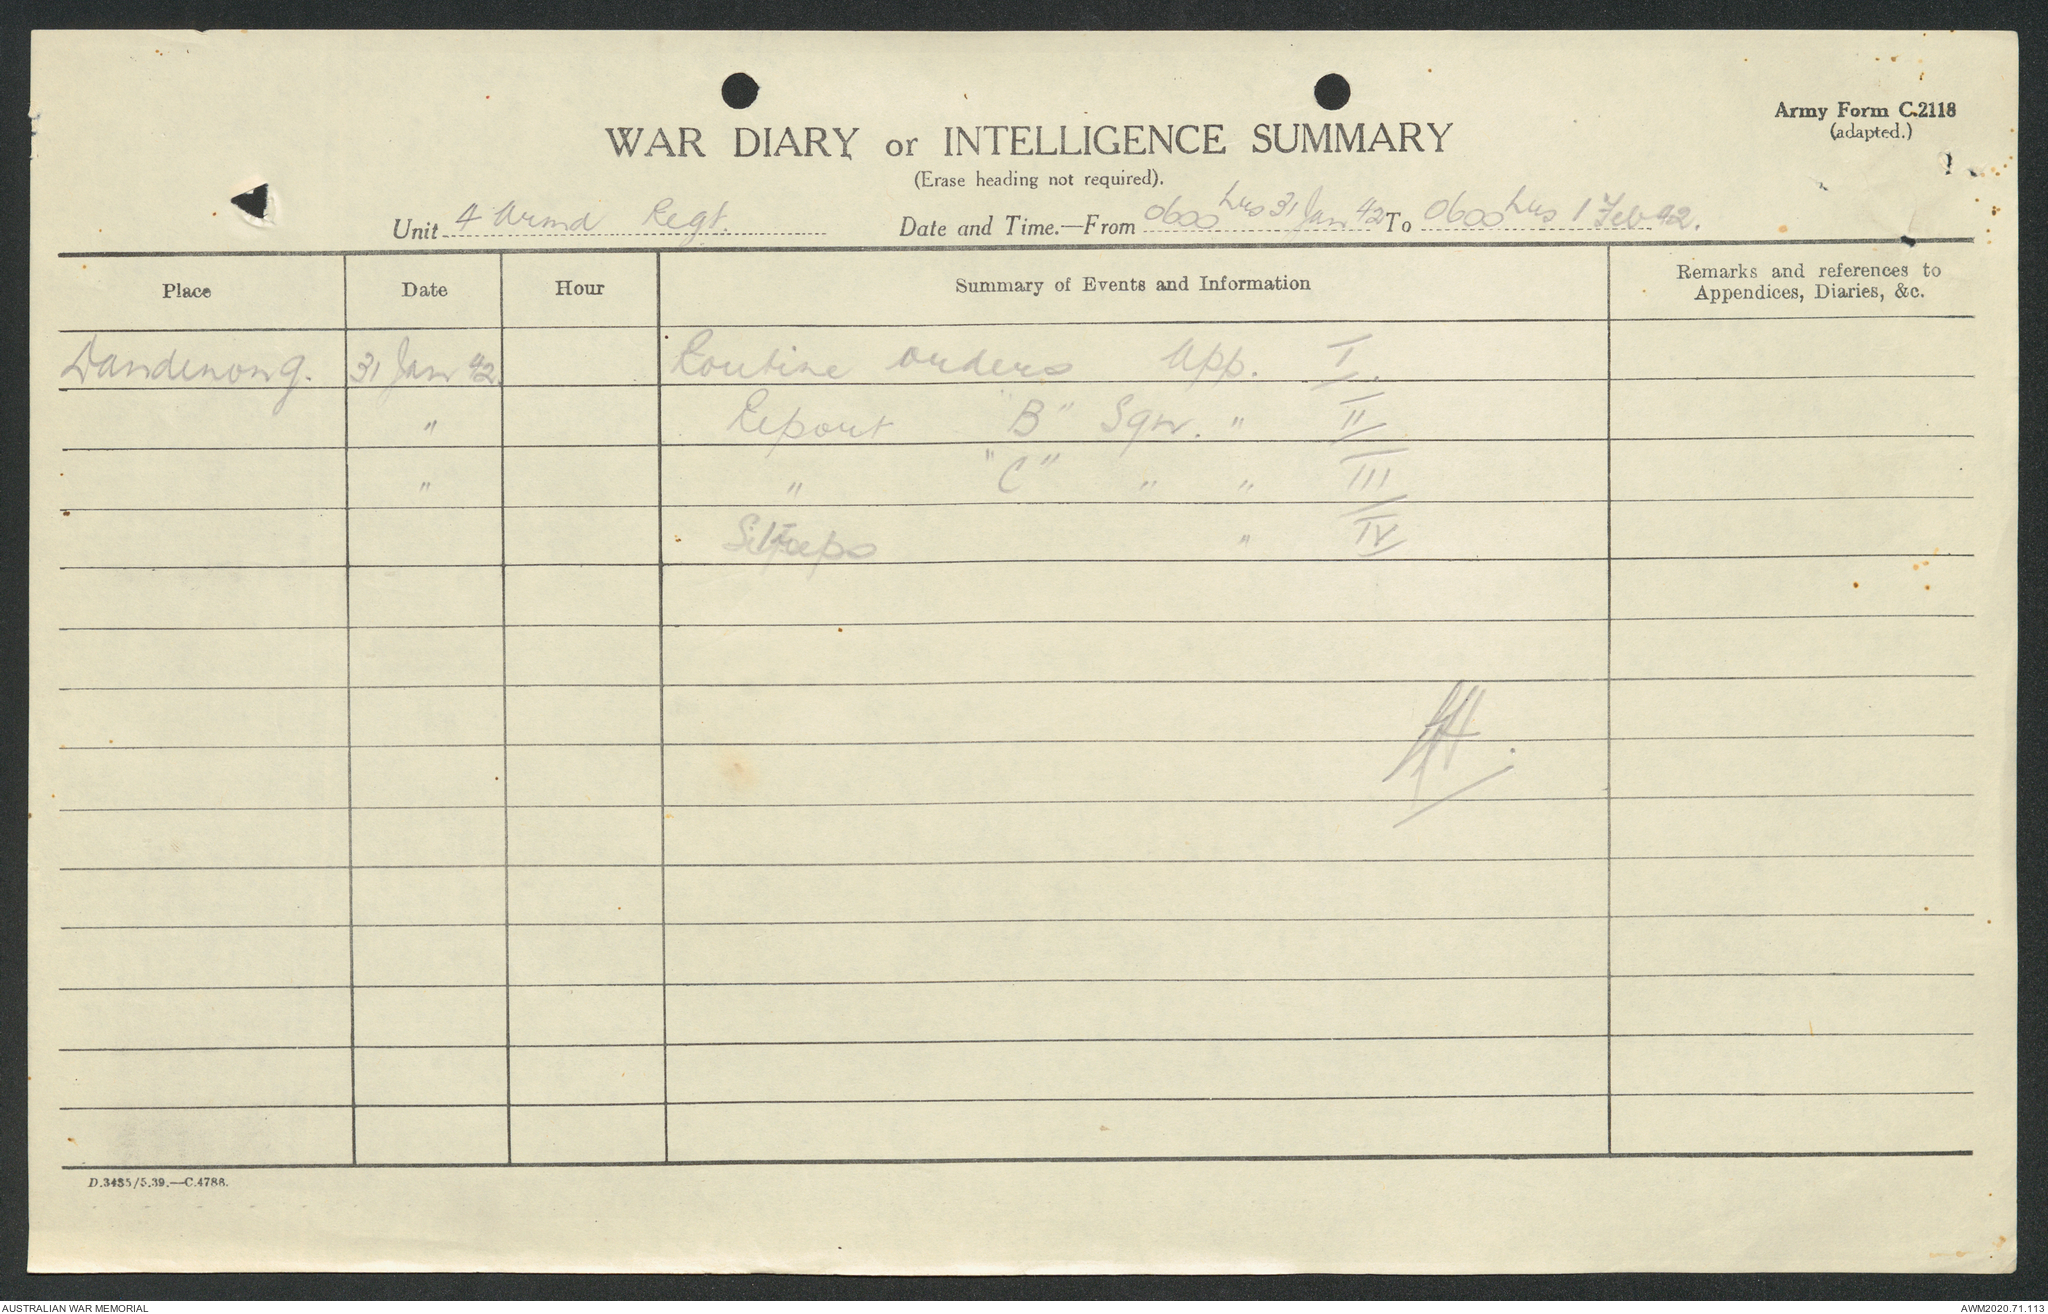 Army Form C.2118
(adapted.)
WAR DIARY or INTELLIGENCE SUMMARY
(Erase heading not required).
Unit 4 Armd Regt. Date and Time.—From 0600 hrs 31 Jan 42 To 0600 hrs 1 Feb 42.
Place Date Hour Summary of Events and Information Remarks and references to
Appendices, Diaries, &c.
Dandenong. 31 Jan 42. Routine orders App. I.
" Report "B" Sqn. " II
" " "C" " " III
" IV
D.3435/5.39.—C.4786.
AUSTRALIAN WAR MEMORIAL
AWM2020.71.113